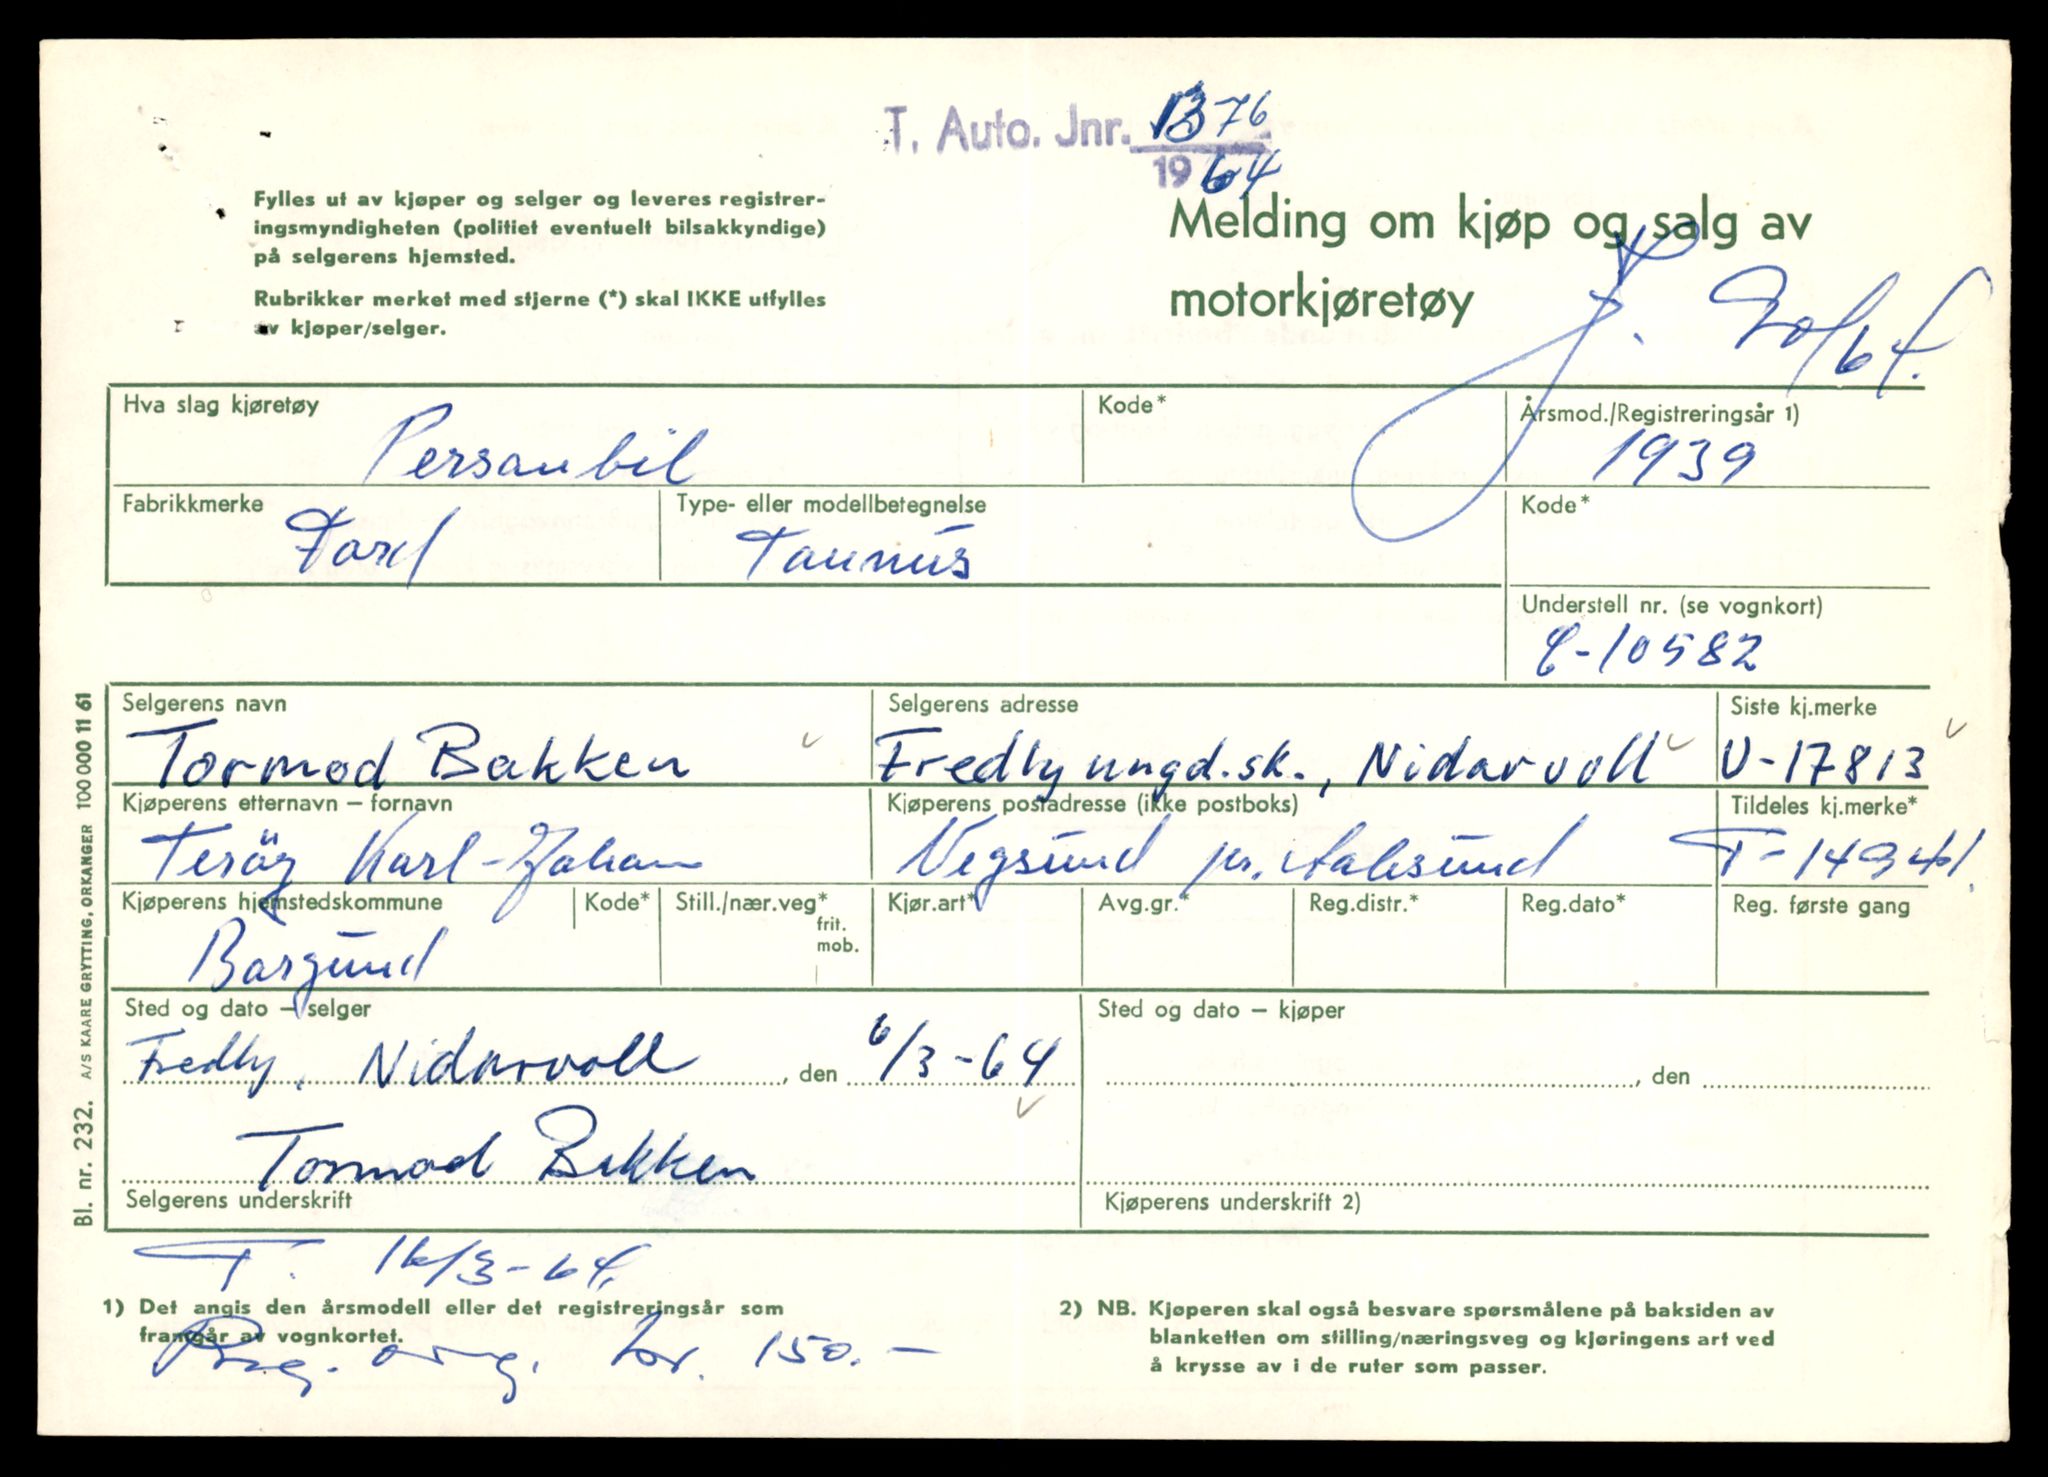 T. Auto. Jnr. 1376
1964
Fylles ut av kjøper og selger og leveres registrer-
ingsmyndigheten (politiet eventuelt bilsakkyndige)
på selgerens hjemsted.
Rubrikker merket med stjerne (*) skal IKKE utfylles
av kjøper/selger.
Melding om kjøp og salg av
motorkjøretøy
Hva slag kjøretøy
Personbil
Kode*
Årsmod./Registreringsår 1)
1939
Fabrikkmerke
Ford
Type- eller modellbetegnelse
Taunus
Kode*
Understell nr. (se vognkort)
C-10582
Selgerens navn
Tormod Bakken
Selgerens adresse
Fredly ungd.sk., Nidarvoll
Siste kj.merke
U-17813
Kjøperens etternavn – fornavn
Terøy Karl-Johan
Kjøperens postadresse (ikke postboks)
Vegsund pr. Aalesund
Tildeles kj.merke*
T-14934
Kjøperens hjemstedskommune
Borgund
Kode*
Still./nær.veg*
frit.
mob.
Kjør.art*
Avg.gr.*
Reg.distr.*
Reg.dato*
Reg. første gang
Sted og dato – selger
Fredly, Nidarvoll , den 6/3-64
Tormod Bakken
Selgerens underskrift
Sted og dato – kjøper
, den
Kjøperens underskrift 2)
T. 16/3-64.
1) Det angis den årsmodell eller det registreringsår som
framgår av vognkortet.
kr. 150.-
2) NB. Kjøperen skal også besvare spørsmålene på baksiden av
blanketten om stilling/næringsveg og kjøringens art ved
å krysse av i de ruter som passer.
Bl. nr. 232. A/S KAARE GRYTTING, ORKANGER 100 000 11 61